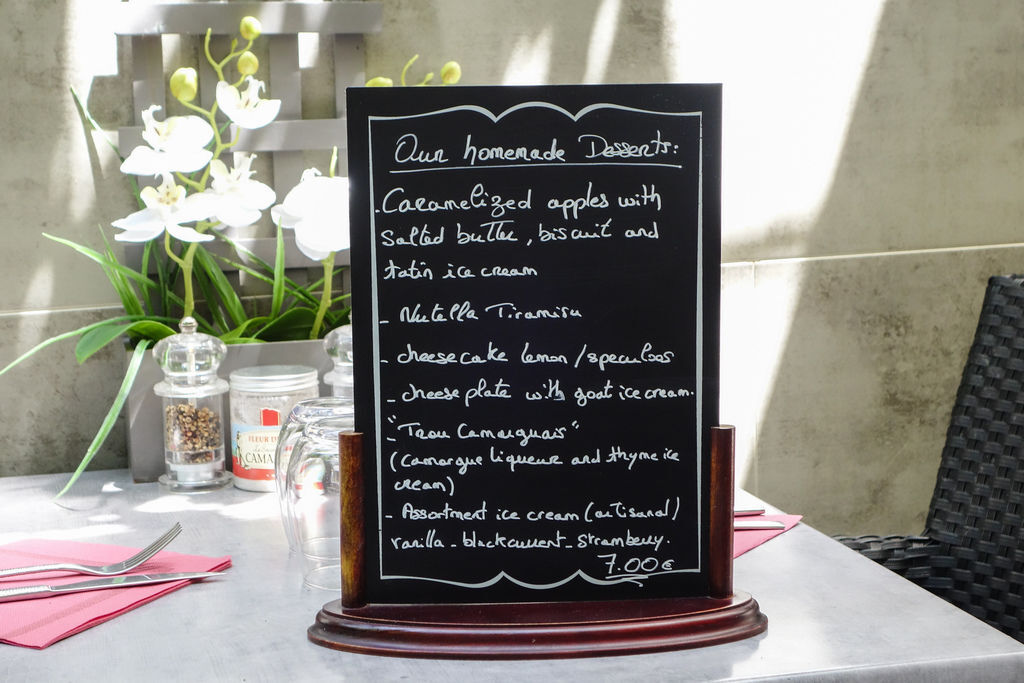 Our homemade Desserts:
.Caramelized apples with
Salted butter, biscuit and
tatin ice cream
- Nutella Tiramisu
- cheesecake lemon/speculoos
- cheese plate with goat ice cream.
- "Trou Camarguais"
(Camargue liqueur and thyme ice
cream)
- Assortment ice cream (artisanal)
vanilla - blackcurrent - stramberry.
7.00€
FLEUR DE
CAMA